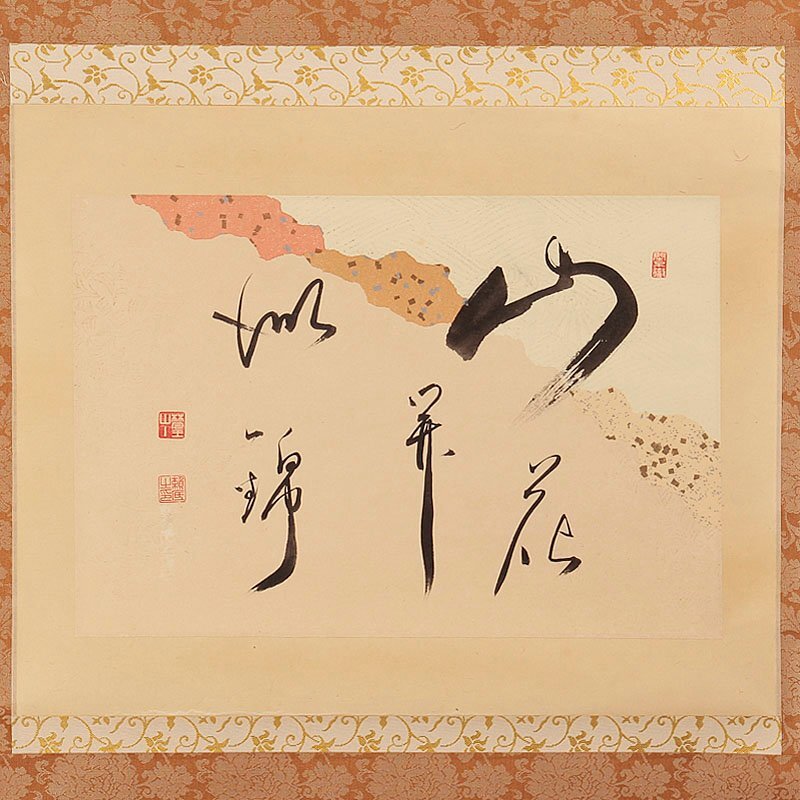 山花
開
似錦